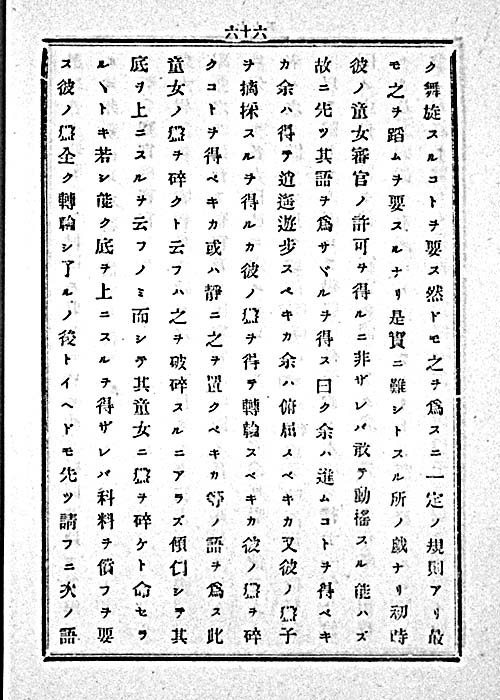 六十六
ク舞旋スルコトヲ要ス然ドモ之ヲ爲スニ一定ノ規則アリ最
モ之ヲ蹈ムヲ要スルナリ是實ニ難シトスル所ノ戯ナリ初時
彼ノ童女審官ノ許可ヲ得ルニ非ザレバ敢テ動搖スル能ハズ
故ニ先ツ其語ヲ爲サヾルヲ得ス曰ク余ハ進ムコトヲ得ベキ
カ余ハ得テ逍遙遊步スベキカ余ハ俯屈スベキカ又彼ノ子
ヲ摘採スルヲ得ルカ彼ノヲ得テ轉輪スベキカ彼ノヲ碎
クコトヲ得ベキカ或ハ靜ニ之ヲ置クベキカ等ノ語ヲ爲ス此
童女ノヲ碎クト云フハ之ヲ破碎スルニアラズ傾倒シテ其
底ヲ上ニスルヲ云フノミ而シテ其童女ニヲ碎ケト命セラ
ルヽトキ若シ能ク底ヲ上ニスルヲ得ザレバ科料ヲ償フヲ要
ス彼ノ全ク轉輪シ了ルノ後トイヘドモ先ツ請フニ次ノ語